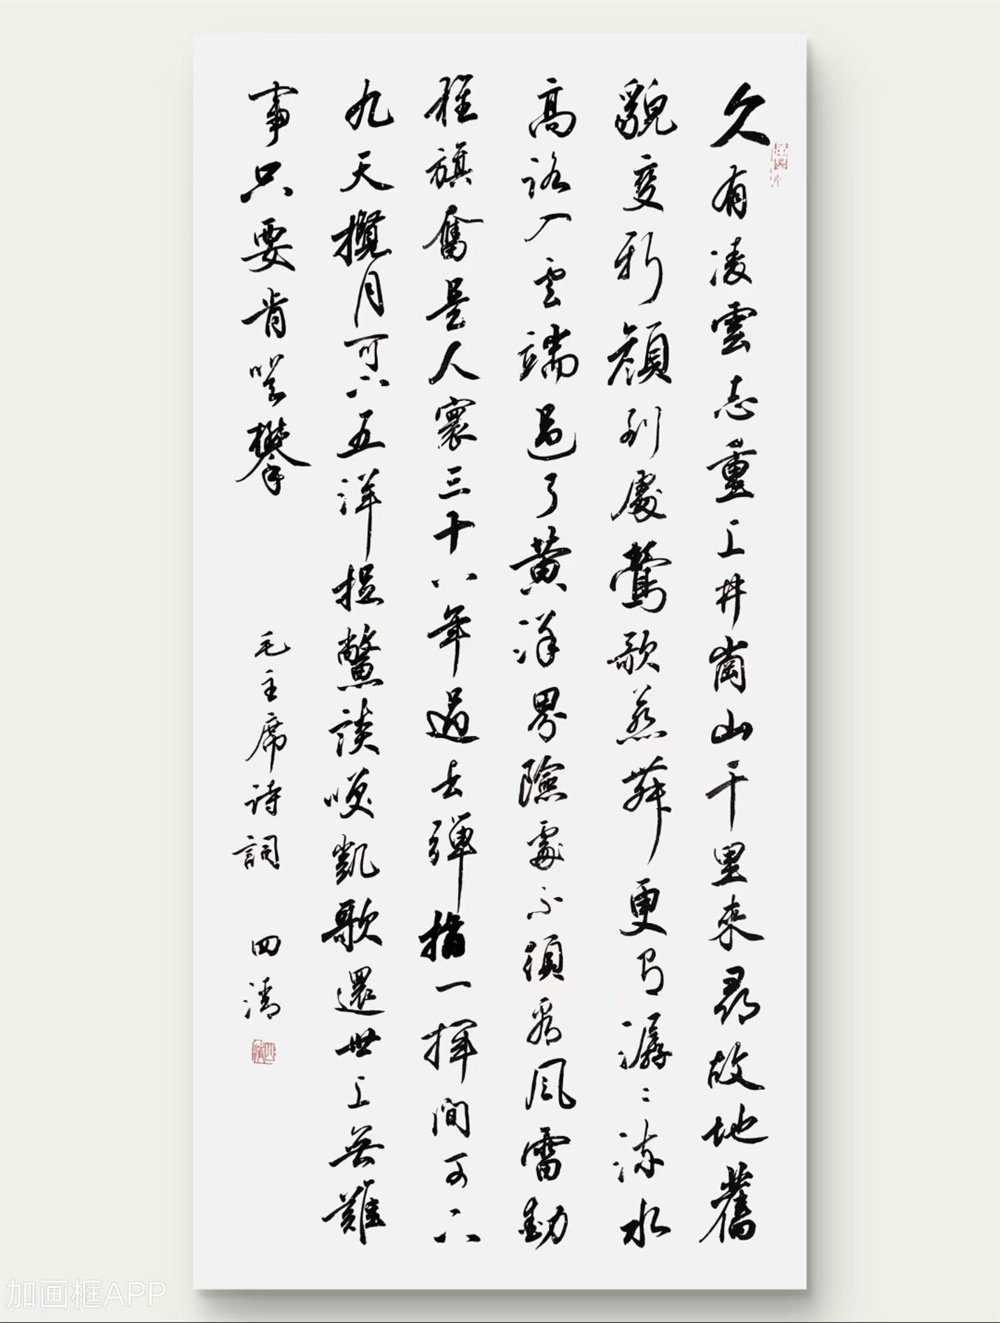 久有凌雲志重上井崗山千里來尋故地舊
貌變新顏到處鶯歌燕舞更有潺〻流水
高路入雲端過了黃洋界險處不須看風雷動
旌旗奮是人寰三十八年過去彈指一揮間可下
九天攬月可下五洋捉鱉談笑凱歌還世上無難
事只要肯登攀
毛主席詩詞 四清
加画框APP